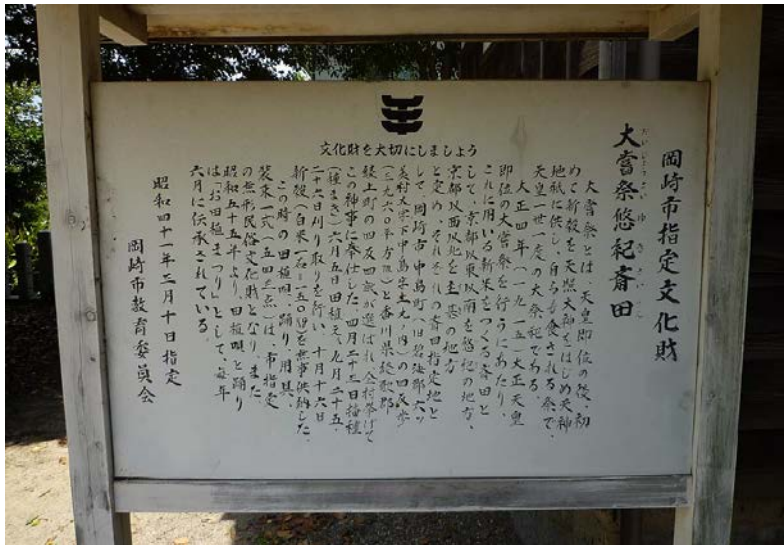 文化財を大切にしましょう
岡崎市指定文化財
大嘗祭悠紀斎田
だいじょうさいゆきさいでん
大嘗祭とは、天皇即位の後、初
めて新穀を天照大神をはじめ天神
地祇に供し、自らも食される祭で、
天皇一世一度の大祭祀である。
大正四年(一九一五)大正天皇
即位の大嘗祭を行うにあたり、
これに用いる新米をつくる斎田と
して、京都以東以南を悠紀の地方、
京都以西以北を主基の地方
と定め、それぞれの斎田指定地と
して、岡崎市中島町(旧碧海郡六ツ
美村大字下中島字上丸ノ内)の四反歩
(三九六〇平方m)と香川県綾歌郡
綾上町の四反四畝が選ばれ、全村挙げて
この神事に奉仕した。四月二十三日播種
(種まき)六月五日田植え、九月二十五、
二十六日刈り取りを行い、十月十六日
新穀(白米一石=一五〇kg)を無事供納した。
この時の田植唄、踊り用具、
装束一式(五四三点)は、市指定
の無形民俗文化財となり、また
昭和五十五年より、田植唄と踊り
は「お田植まつり」として、毎年
六月に伝承されている。
昭和四十一年三月十日指定
岡崎市教育委員会